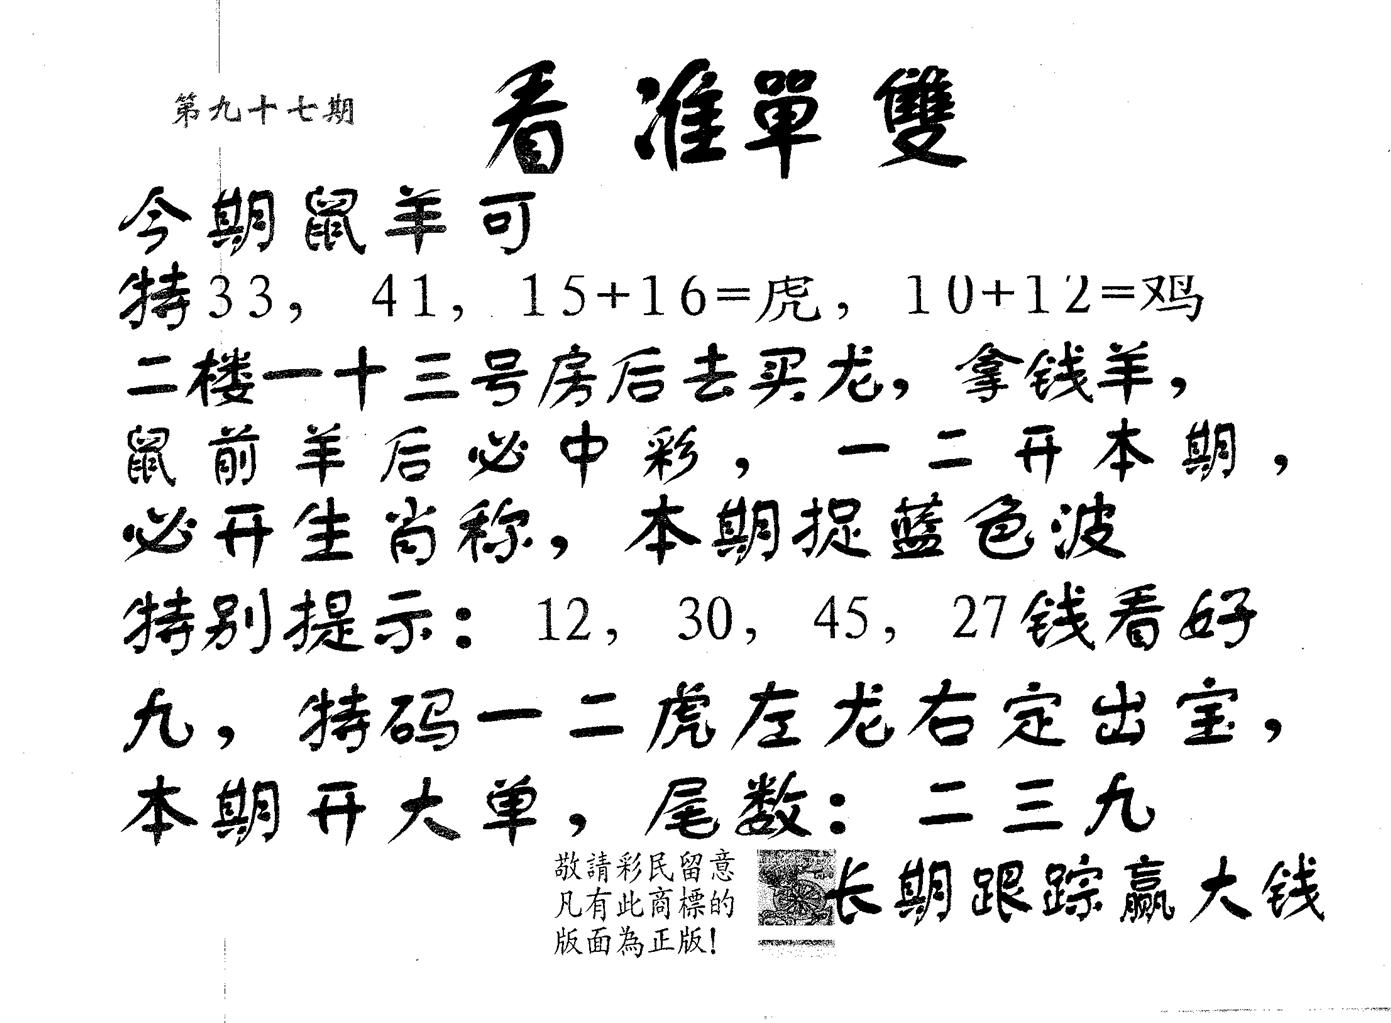 第九十七期
看准單雙
今期鼠羊可
特33， 41， 15+16=虎， 10+12=鸡
二楼一十三号房后去买龙，拿钱羊，
鼠前羊后必中彩，一二开本期，
必开生肖称，本期捉蓝色波
特别提示：12， 30， 45， 27钱看好
九，特码一二虎左龙右定出宝，
本期开大单，尾数：二三九
敬請彩民留意
凡有此商標的
版面為正版！
长期跟踪赢大钱